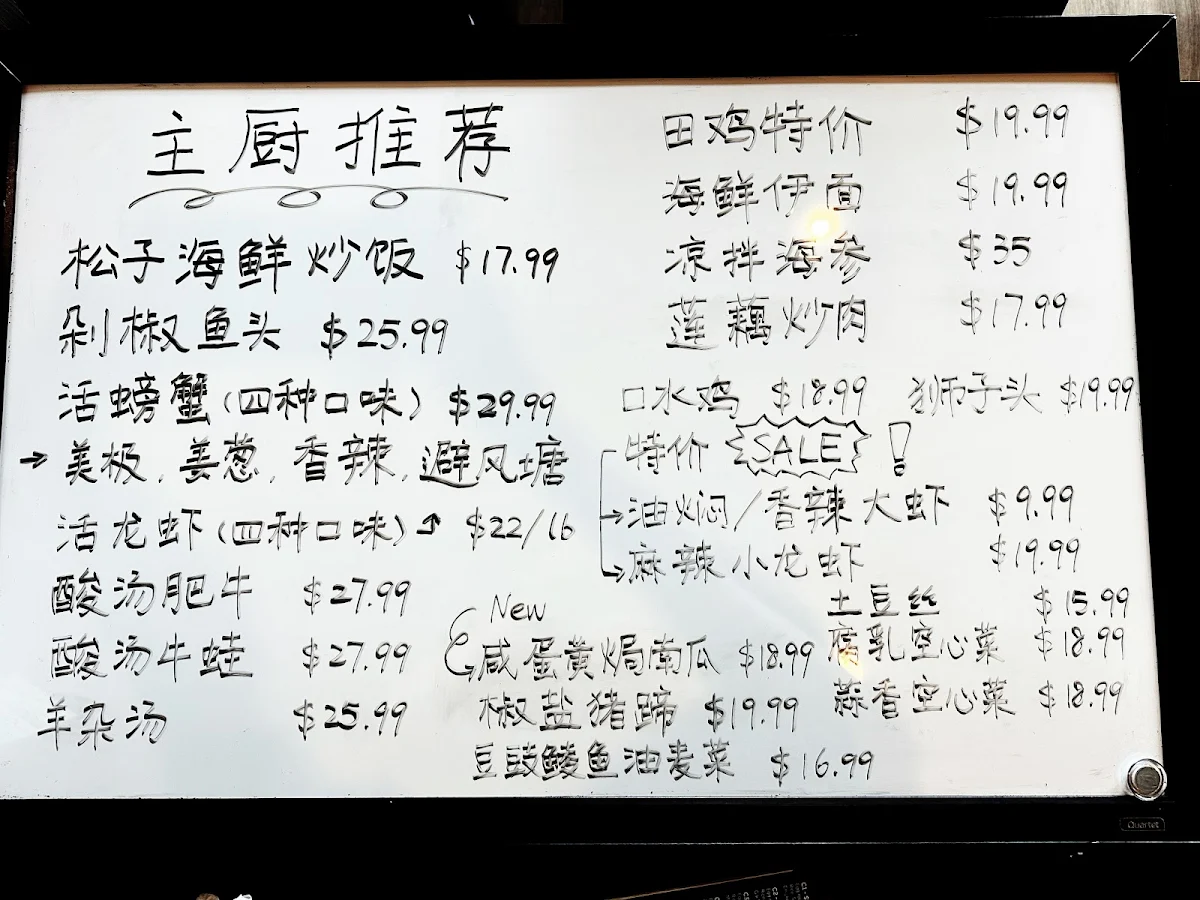 主厨推荐
松子海鲜炒饭 $17.99
剁椒鱼头 $25.99
活螃蟹(四种口味) $29.99
→ 美极, 姜葱, 香辣, 避风塘
活龙虾(四种口味) $22/lb
酸汤肥牛 $27.99
酸汤牛蛙 $27.99
羊杂汤 $25.99
田鸡特价 $19.99
海鲜伊面 $19.99
凉拌海参 $35
莲藕炒肉 $17.99
口水鸡 $18.99 狮子头 $19.99
特价 SALE !
→油焖/香辣大虾 $9.99
→麻辣小龙虾 $19.99
New
咸蛋黄焗南瓜 $18.99
椒盐猪蹄 $19.99
豆豉鲮鱼油麦菜 $16.99
土豆丝 $15.99
腐乳空心菜 $18.99
蒜香空心菜 $18.99
Quartet